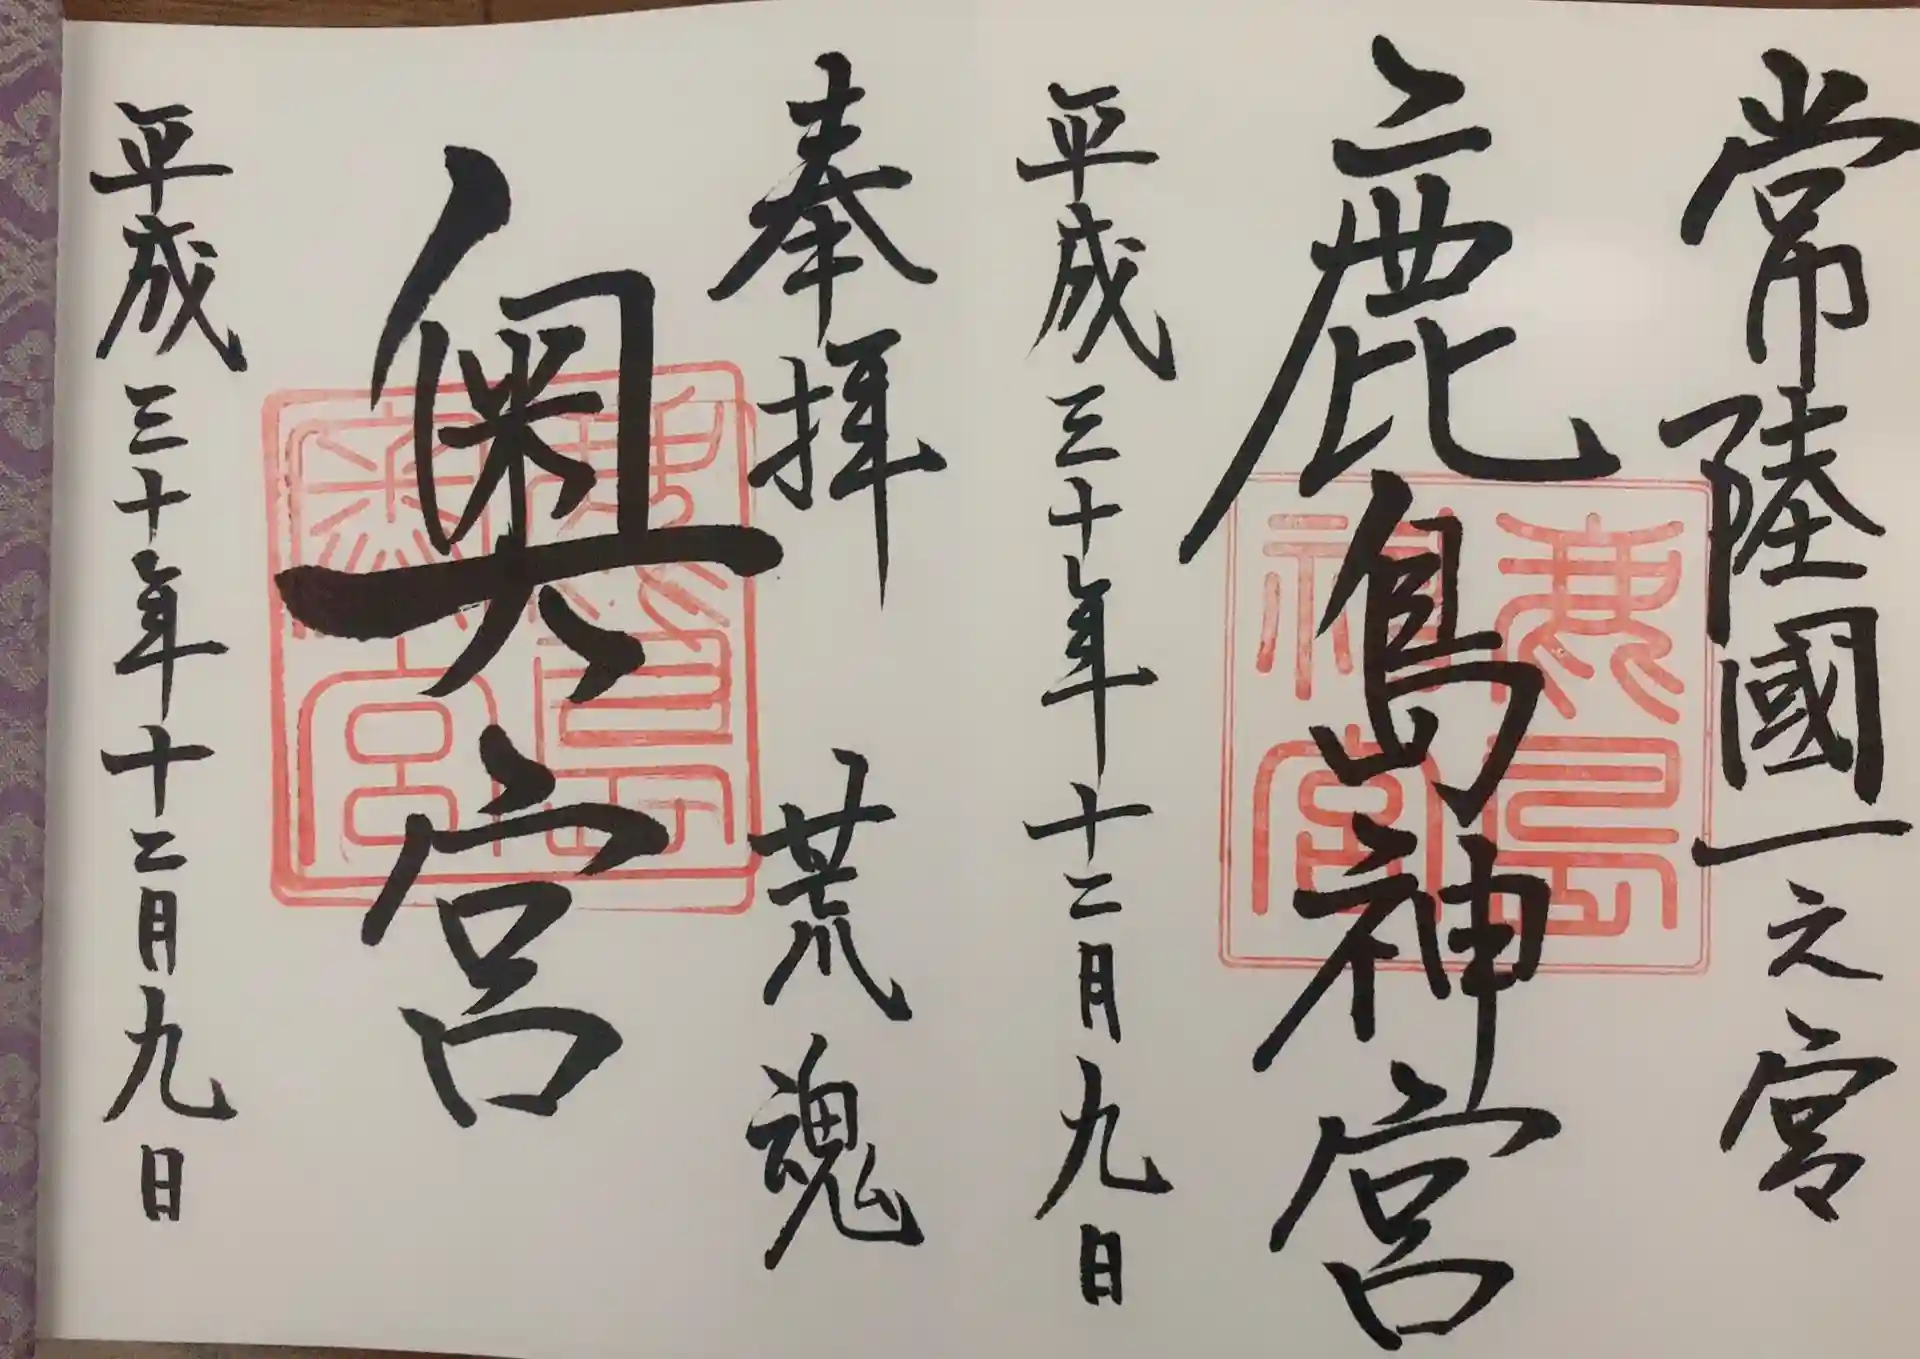 常陸國一之宮
鹿島神宮
平成三十年十二月九日
奉拝 荒魂
奥宮
平成三十年十二月九日
鹿島神宮